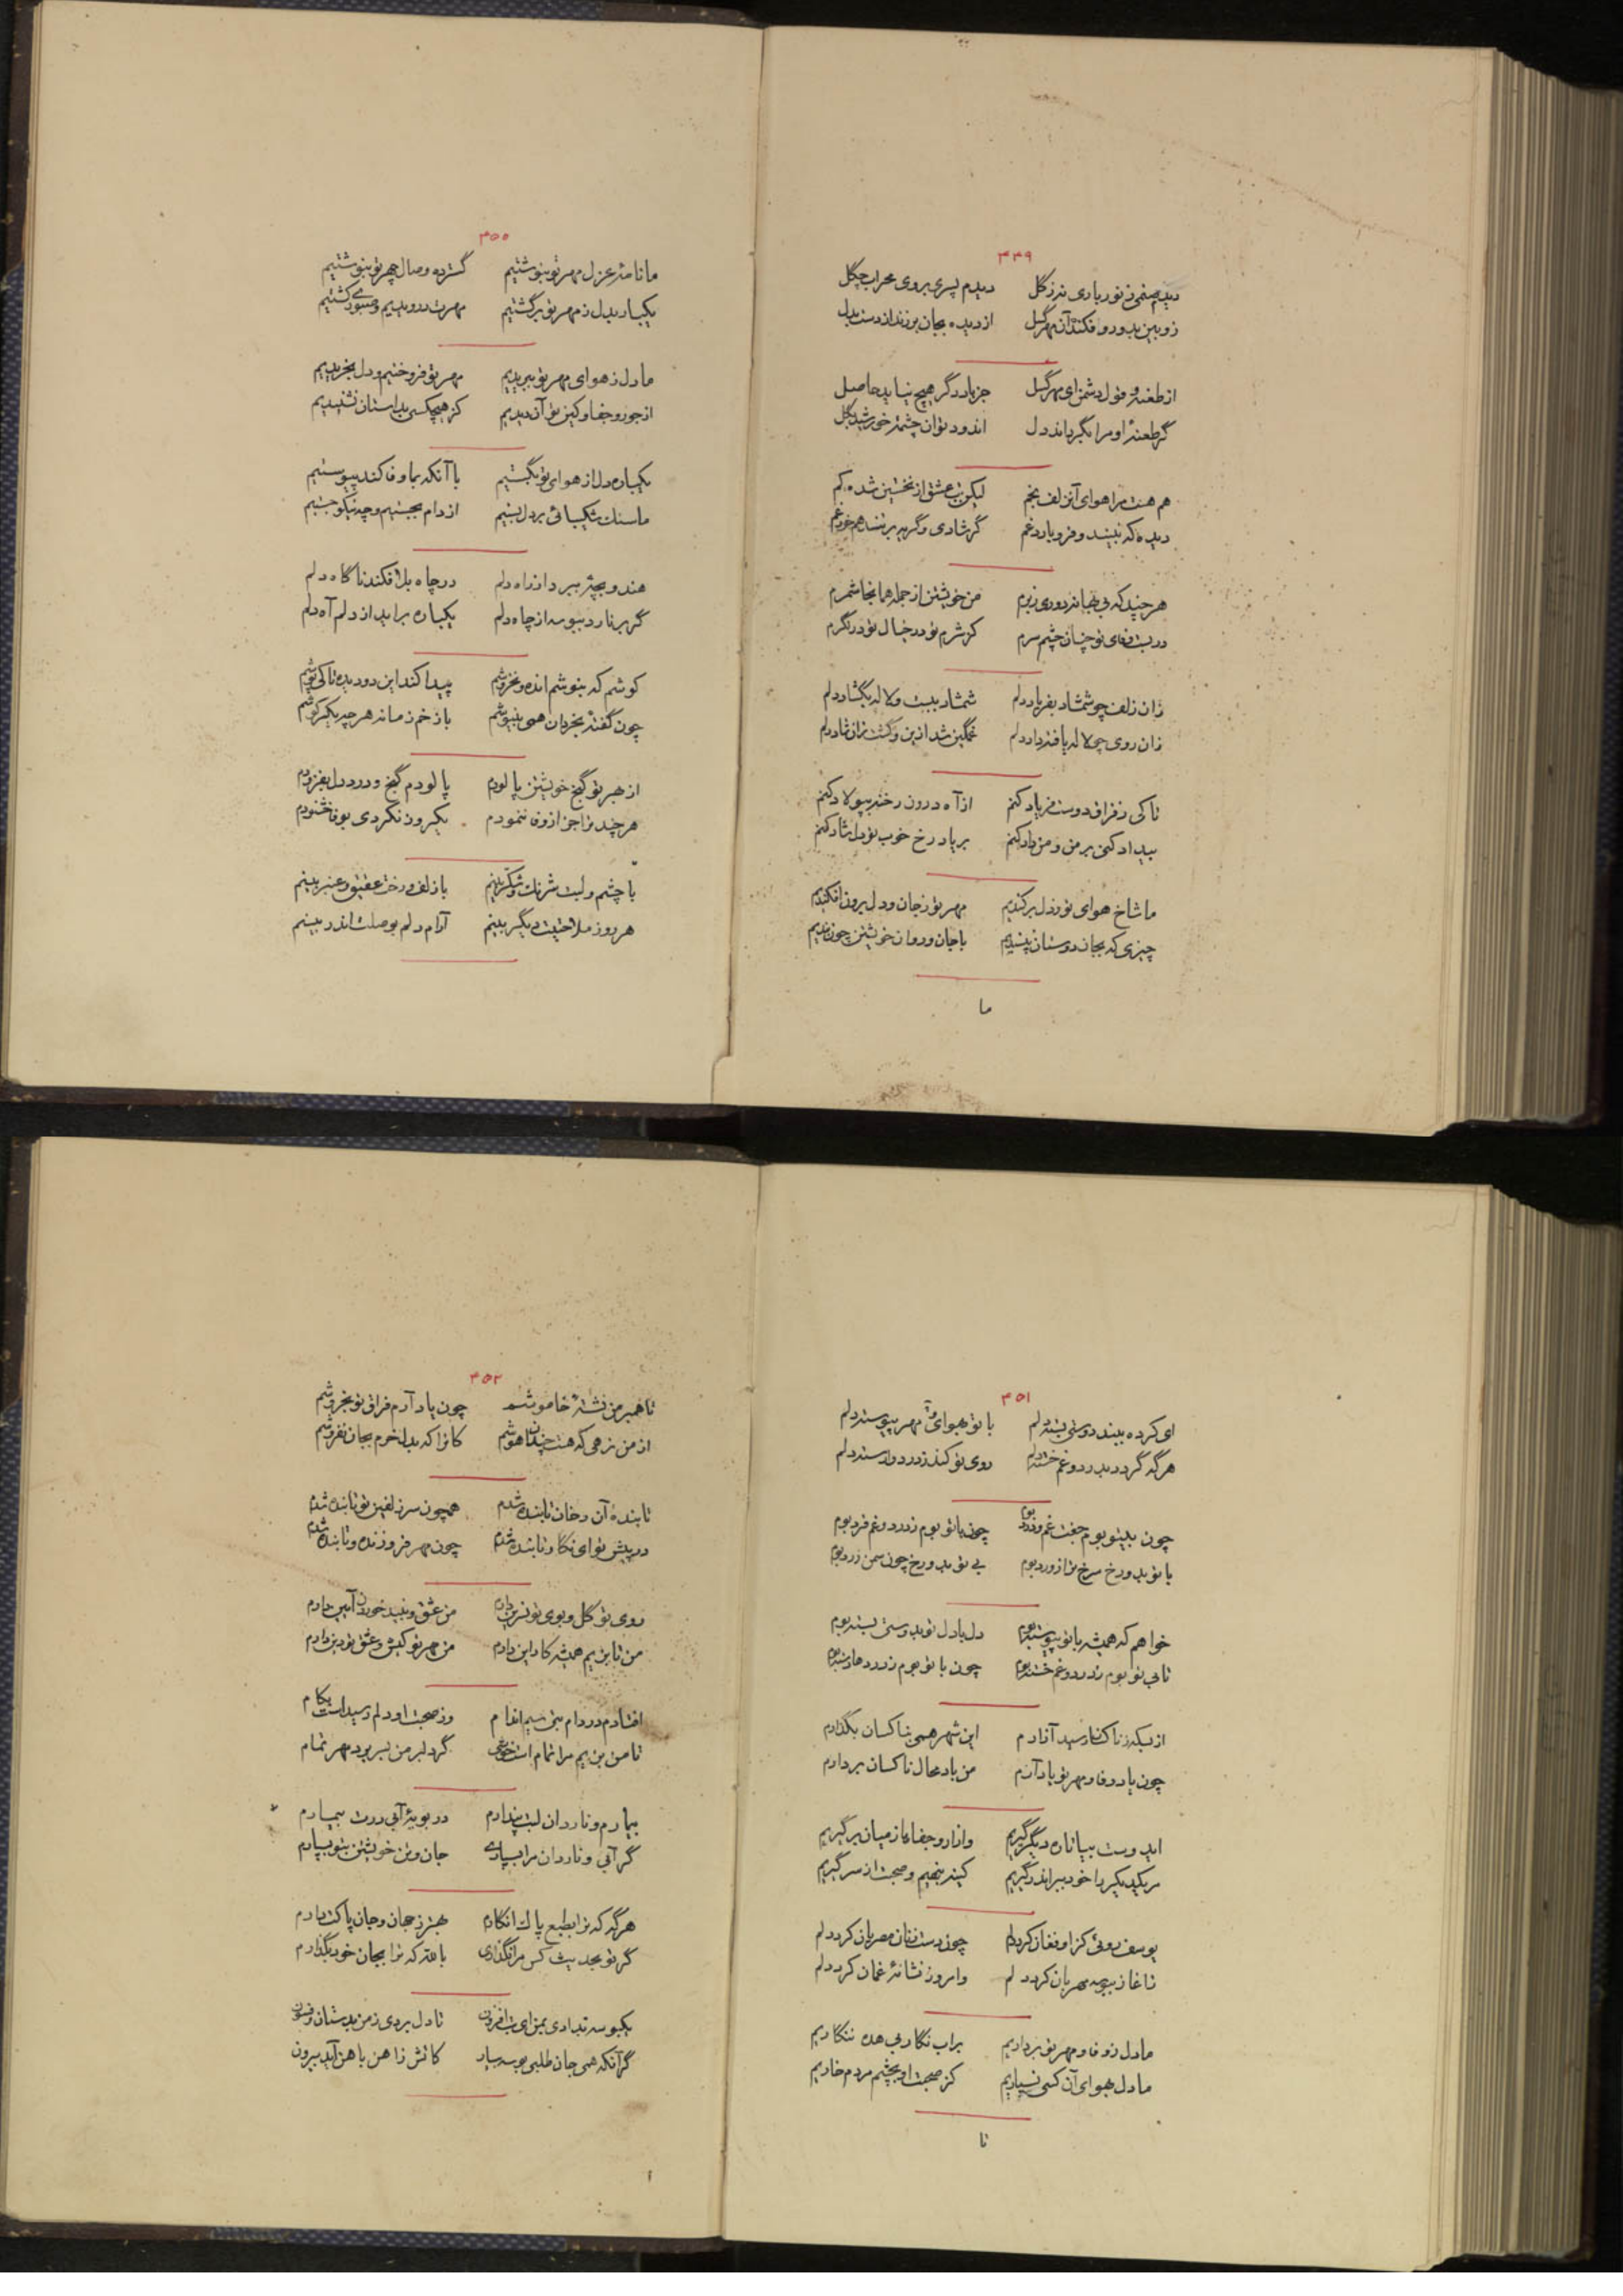 ۴۴۹
دیدم صنمی ز نور باری نه ز گل دیدم پسری بروی محراب چگل
زوبین بدو رو فکند آن مهر گسل از دیده بجان برزند از دست بدل
از طعنه و قول دشمن ای مهر گسل جز باد دگر هیچ نیاید حاصل
گر طعنهٔ او مرا بگرداند دل اندود توان چشمه خورشید بگل
هم هست مرا هوای آن زلف بخم لیکن تب عشق از نخستین شده کم
دیده که نبیند و فرو بارد غم گر شادی و گریه بر نشاند هم غم
هر چند که بی بها نه دوری ز برم من خویشتن از جمله همانجا شمرم
در بست قفای تو چنان چشم سرم کز شرم تو در خیال تو در نگرم
زان زلف چو شمشاد بفریاد دلم شمشاد ببست و لاله بگشاد دلم
زان روی چو لاله یافته داد دلم غمگین شد ازین و گشت زان شاد دلم
تا کی ز فراق دوست فریاد کنم از آه درون رخنه بپولاد کنم
بیداد کنی بر من و من داد کنم بر یاد رخ خوب تو دل شاد کنم
ما شاخ هوای تو ز دل برکندیم مهر تو ز جان و دل برون افکندیم
چیزی که بجان دوستان نپسندیم با جان و روان خویشتن چون بندیم
ما
۴۵۰
ما نامه عزل مهر تو بنوشتیم گسترده وصال چهر تو بنوشتیم
یکباره بدل ز مهر تو برگشتیم مهرت درودیم و صبوری کشتیم
ما دل ز هوای مهر تو ببریدیم مهر تو فروختیم و دل بخریدیم
از جور و جفا و کین تو آن دیدیم کز هیچکسی بداستان نشنیدیم
یکباره دل از هوای تو بگسستیم با آنکه بما وفا کند پیوستیم
ما سنگ شکیبائی بر دل بستیم از دام بجستیم و چه نیکو جستیم
هندو بچهٔ ببرد از راه دلم در چاه بلا فکند ناگاه دلم
گر برنارد ببوسه از چاه دلم یکباره براید از دلم آه دلم
کوشم که بنوشم انده و نخروشم پیدا کند این دو دیده تا کی پوشم
چون گفته بخردان همی ننیوشم با زخم زمانه هر چه دیگر کوشم
از هجر تو گنج خویشتن پالودم پالودم گنج و درد دل بفزودم
هر چند ترا جز از وفا ننمودم یکروز نکردی بوفا خشنودم
با چشم و لبت شرنگ و شکر بینم با زلف و رخت عقیق و عنبر بینم
هر روز ملاحتیت دیگر بینم آرام دلم بوصلت اندر بینم
۴۵۱
ای کرده ببند دوستی بسته دلم با تو بهوای و مهر پیوسته دلم
هر گه گردد بدرد و غم خسته دلم روی تو کند ز درد وارسته دلم
چون بیتو بوم جفت غم و درد بوم چون با تو بوم ز درد و غم فرد بوم
با تو بدو رخ سرخ‌تر از ورد بوم بی تو بدو رخ چون سمن زرد بوم
خواهم که همیشه با تو پیوسته بوم دل با دل تو بدوستی بسته بوم
تا بی تو بوم ز درد و غم خسته بوم چون با تو بوم ز دردها رسته بوم
از بسکه ز ناکسان رسید آزارم این شهر همی بناکسان بگذارم
چون یاد وفا و مهر تو یاد آرم من بار محال ناکسان بردارم
ایدوست بیا تا ره دیگر گیریم وازار و جفا ما ز میان برگیریم
مر یکدیگر را خود ببر اندر گیریم کینه بنهیم و صحبت از سر گیریم
یوسف روئی کز او فغان کرد دلم چون دست زنان مصریان کرد دلم
ز آغاز ببوسه مهربان کرد دلم وامروز نشانهٔ غمان کرد دلم
ما دل ز وفا و مهر تو برداریم بر اب نگار بی هده ننگاریم
ما دل بهوای آن کسی نسپاریم کز صحبت او بچشم مردم خاریم
تا
۴۵۲
تا همبر من نشستهٔ خاموشم چون یاد آرم فراق تو بخروشم
از من نرهی که هست چندان هوشم کانرا که بدل خرم بجان نفروشم
تا بندهٔ آن رخان تابنده شدم همچون سر زلفین تو تابنده شدم
در پیش تو ای نگار تا بنده شدم چون مهر فروزنده و تابنده شدم
روی تو گل و بوی تو نسرین دارم من عشق و نبید خوردن آیین دارم
من تا بزیم همیشه کار این دارم من مهر تو کیش و عشق تو دین دارم
افتادم در دام بتی سیم اندام وز صحبت او دلم رسیداست بکام
تا من بزیم مرا تمام است خوشی گر دلبر من بسر برد مهر تمام
بیمارم و ناردان لبت پندارم در بویهٔ آبی درت بیمارم
گر آبی و ناردان مرا بسپاری جان و تن خویشتن بتو بسپارم
هر گه که ترا بطبع پاک انگارم بهتر ز جهان و جان پاکت دارم
گر تو بحدیث کس مرا نگذاری بالله که ترا بجان خود نگذارم
یکبوسه ندادی بمن ای بت افزون تا دل بردی ز من بدستان و فسون
گر آنکه همی جان طلبی بوسه بیار کاتش ز اهن با هن آید بیرون